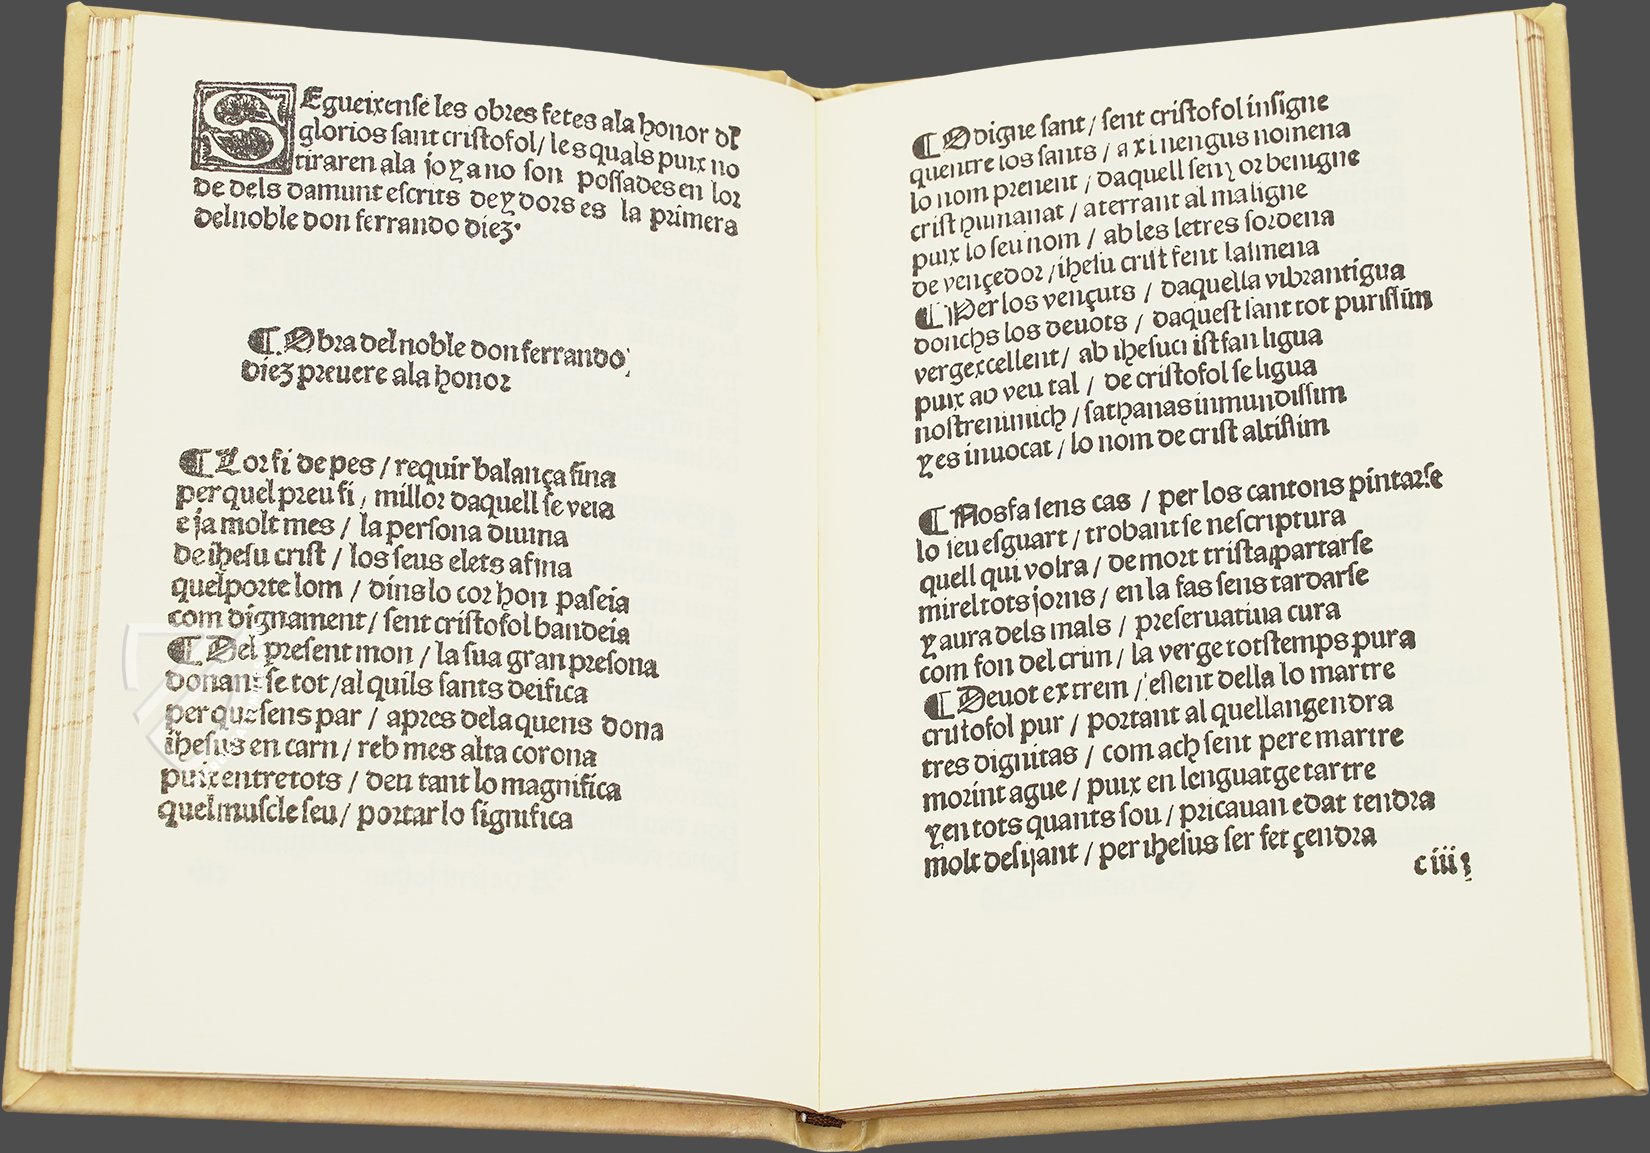 SEgueixense les obres fetes ala honor del
glorios sant cristofol/ les quals puix no
tiraren ala joya no son possades en lor
de dels damunt escrits deydors es la primera
delnoble don ferrando diez·
¶.Obra del noble don ferrando
diez preuere ala honor
¶Lor fi de pes / requir balança fina
per quel preu fi / millor daquell se veia
e ja molt mes / la persona diuina
de ihesu crist / los seus elets afina
quelporte lom / dins lo cor hon paseia
com dignament/ sent cristofol bandeia
¶Del present mon / la sua gran presona
donant se tot /al quils sants deifica
per que sens par / apres dela quens dona
ihesus en carn / reb mes alta corona
puix entre tots / deu tant lo magnifica
quel muscle seu/ portar lo significa
¶O digne sant / sent cristofol insigne
quentre los sants / axi nengus nomena
lo nom prenent / daquell senyor benigne
crist humanat / aterrant al maligne
puix lo seu nom / ab les letres sordena
de vençedor /ihesu crist fent lalmena
¶Per los vençuts / daquella vibrantigua
donchs los deuots / daquest sant tot purissim
vergexcellent/ ab ihesuci istfan ligua
puix ao veu tal / de cristofol se ligua
nostrenimich / sathanas inmundissim
yes inuocat / lo nom de crist altissim
¶Nosfa sens cas / per los cantons pintarse
lo seu esguart / trobant se nescriptura
quell qui volra / de mort trista partarse
mirel tots jorns / en la fas sens tardarse
y aura dels mals / preseruatiua cura
com fon del crim / la verge totstemps pura
¶Deuot extrem / essent della lo martre
cristofol pur / portant al quellangendra
tres dignitas / com ach sent pere martre
morint ague / puix en lenguatge tartre
y en tots quants sou / pricauan edat tendra
molt desijant / per ihesus ser fet çendra
ciii